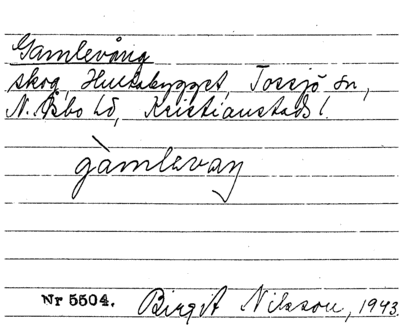 Gamlevång
skog, Hultabygget, Tossjö sn,
N. Åsbo hd, Kristianstads l.
gàmlavaŋ
Nr 5504. Birgit Nilsson, 1943.